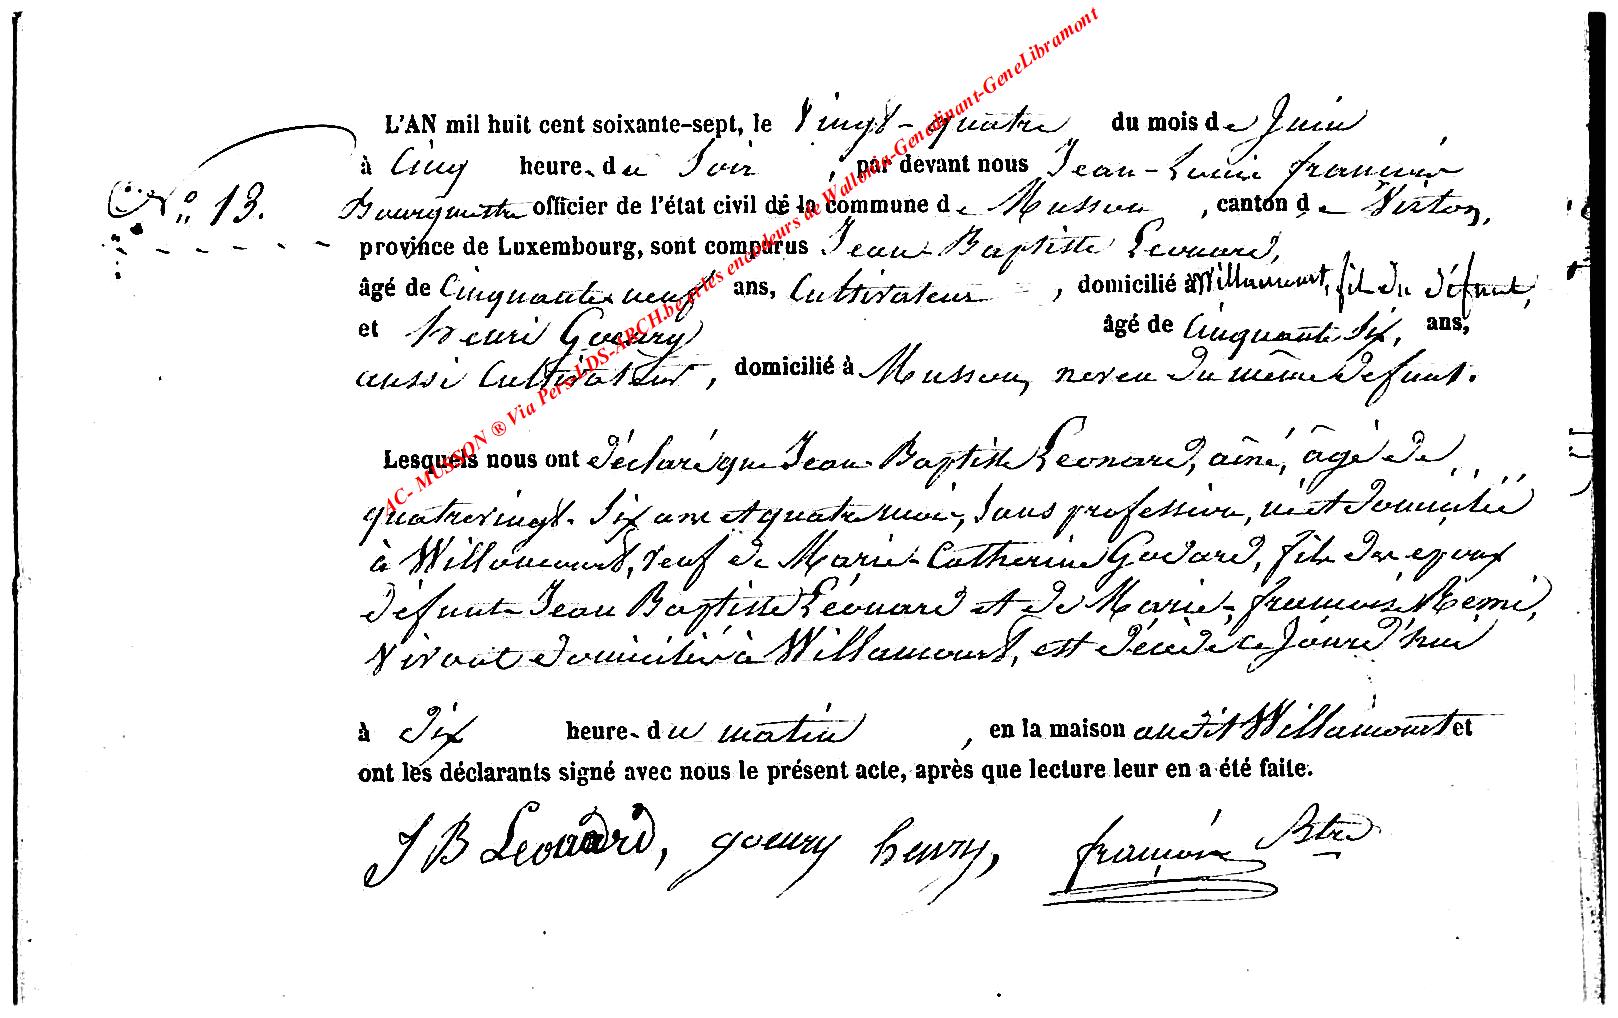 L'AN mil huit cent soixante-sept, le Vingt-quatre du mois de Juin
à Cinq heure. du Soir, par devant nous Jean-Louis françois
N° 13.
Bourgmestre officier de l'état civil de la commune de Musson, canton de Virton,
province de Luxembourg, sont comparus Jean Baptiste Léonard,
âgé de Cinquante neuf ans, Cultivateur, domicilié à Willancourt, fils du défunt,
et henri Goeury âgé de Cinquante Six, ans,
aussi Cultivateur, domicilié à Musson, neveu du même défunt.
Lesquels nous ont déclaré que Jean Baptiste Léonard, aîné, âgé de
quatrevingt-Six ans et quatre mois, Sans profession, né et domicilié
à Willancourt, veuf de Marie-Catherine Godard, fils des époux
défunts Jean Baptiste Léonard et de Marie-françoise Remi,
Vivant domiciliés à Willancourt, est décédé ce Jourd'hui
à dix heure. du matin, en la maison audit Willancourt et
ont les déclarants signé avec nous le présent acte, après que lecture leur en a été faite.
J B Léonard, goeury henry, françois Btre
AC- MUSSON ® Via Pers.LDS-ARCH.be et les encodeurs de Wallonia-Genedinant-GeneLibramont